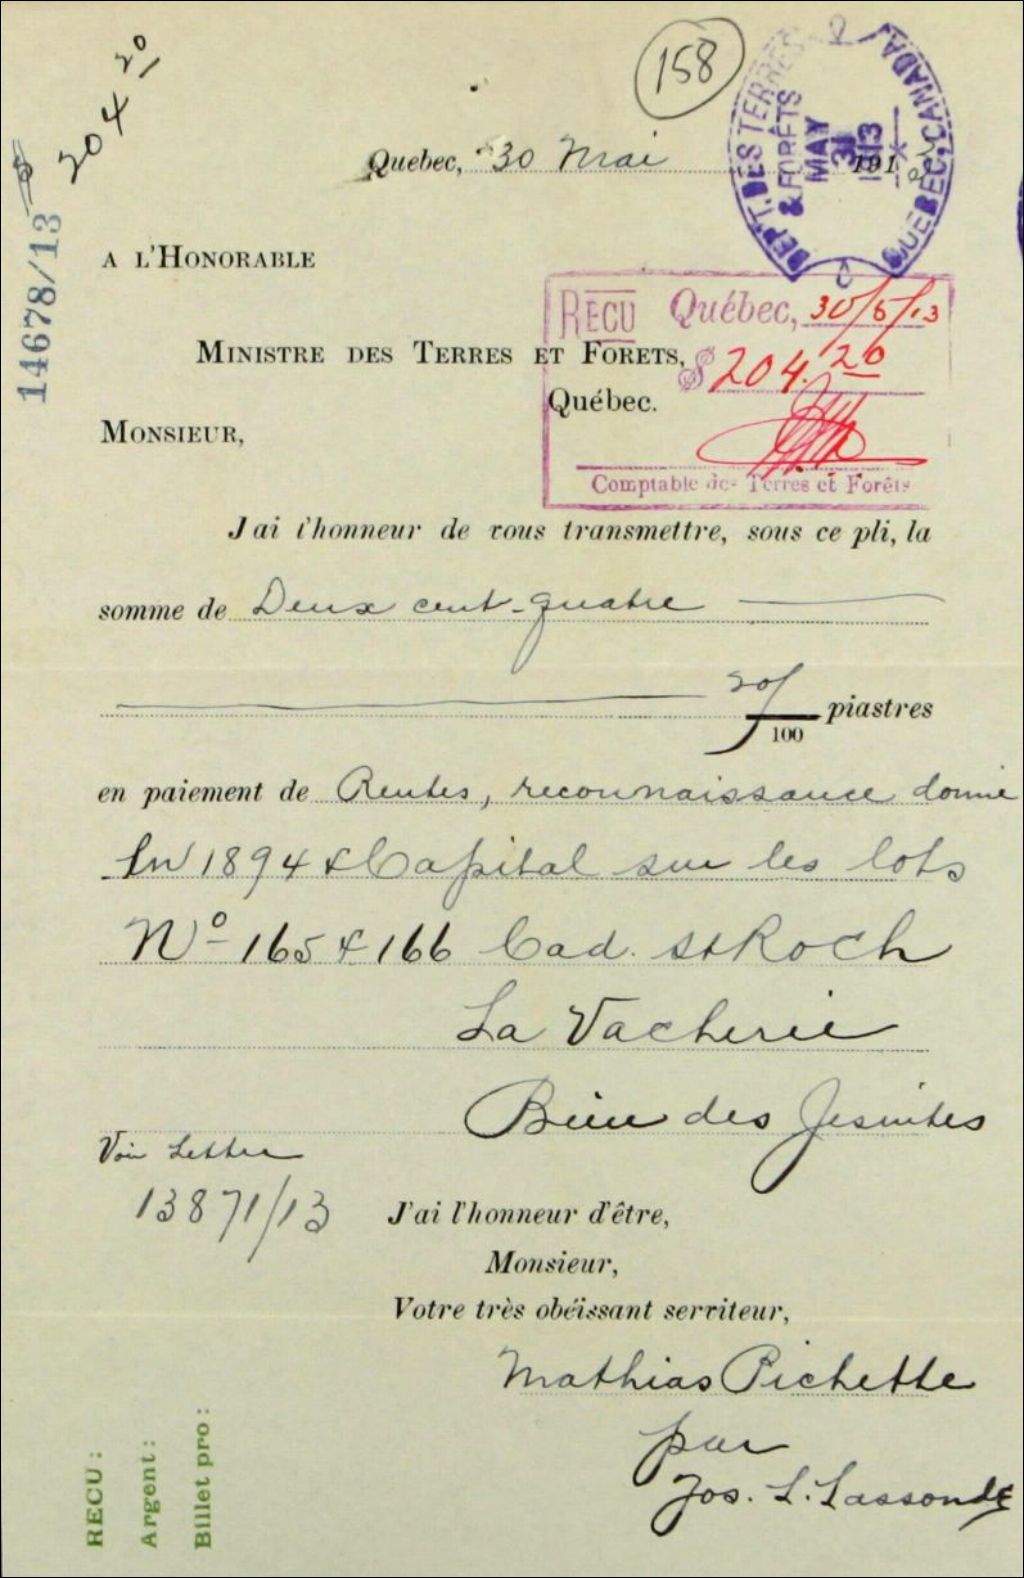 158
$ 204 20
14678/13
DEPT. DES TERRES
& FORÊTS
MAY
1913
QUEBEC, CANADA.
Quebec, 30 Mai 191
A L'HONORABLE
RECU Québec, 30/5/13
MINISTRE DES TERRES ET FORETS,
$ 204.20
Québec.
MONSIEUR,
Comptable des Terres et Forêts
J'ai l'honneur de vous transmettre, sous ce pli, la
somme de Deux cent-quatre
20/100 piastres
en paiement de Rentes, reconnaissance donné
en 1894 & Capital sur les lots
No 165 & 166 Cad. St Roch
La Vacherie
Bien des Jesuites
Voir Lettre
13871/13
J'ai l'honneur d'être,
Monsieur,
Votre très obéissant serviteur,
Mathias Pichette
par
Jos. L. Lassonde
RECU :
Argent :
Billet pro :